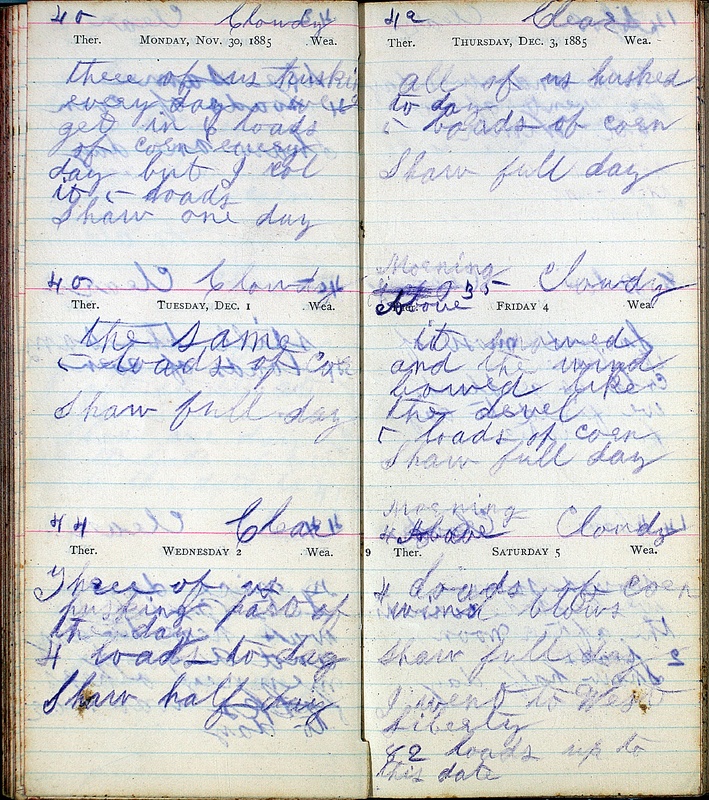 40 Clowdy
Ther. MONDAY, NOV. 30, 1885 Wea.
three of us huskin
every day
get in 6 loads
of corn every
day but I col
it 5 loads
Shaw one day
40 Clowdy
Ther. TUESDAY, DEC. 1 Wea.
the same
5 loads of Cor
Shaw full day
44 Clear
Ther. WEDNESDAY 2 Wea.
Three of us
husking part of
the day
4 loads to day
Shaw half day
42 Clear
Ther. THURSDAY, DEC. 3, 1885 Wea.
all of us husked
to day
5 loads of corn
Shaw full day
Morning
35 Clowdy
Above
Ther. FRIDAY 4 Wea.
it
and the wind
blowed like
the devel
5 loads of corn
Shaw full day
Morning
4 Above Clowdy
9 Ther. SATURDAY 5 Wea.
4 loads of corn
wind blows
Shaw full day
I went to West
Liberty
82 loads up to
this date